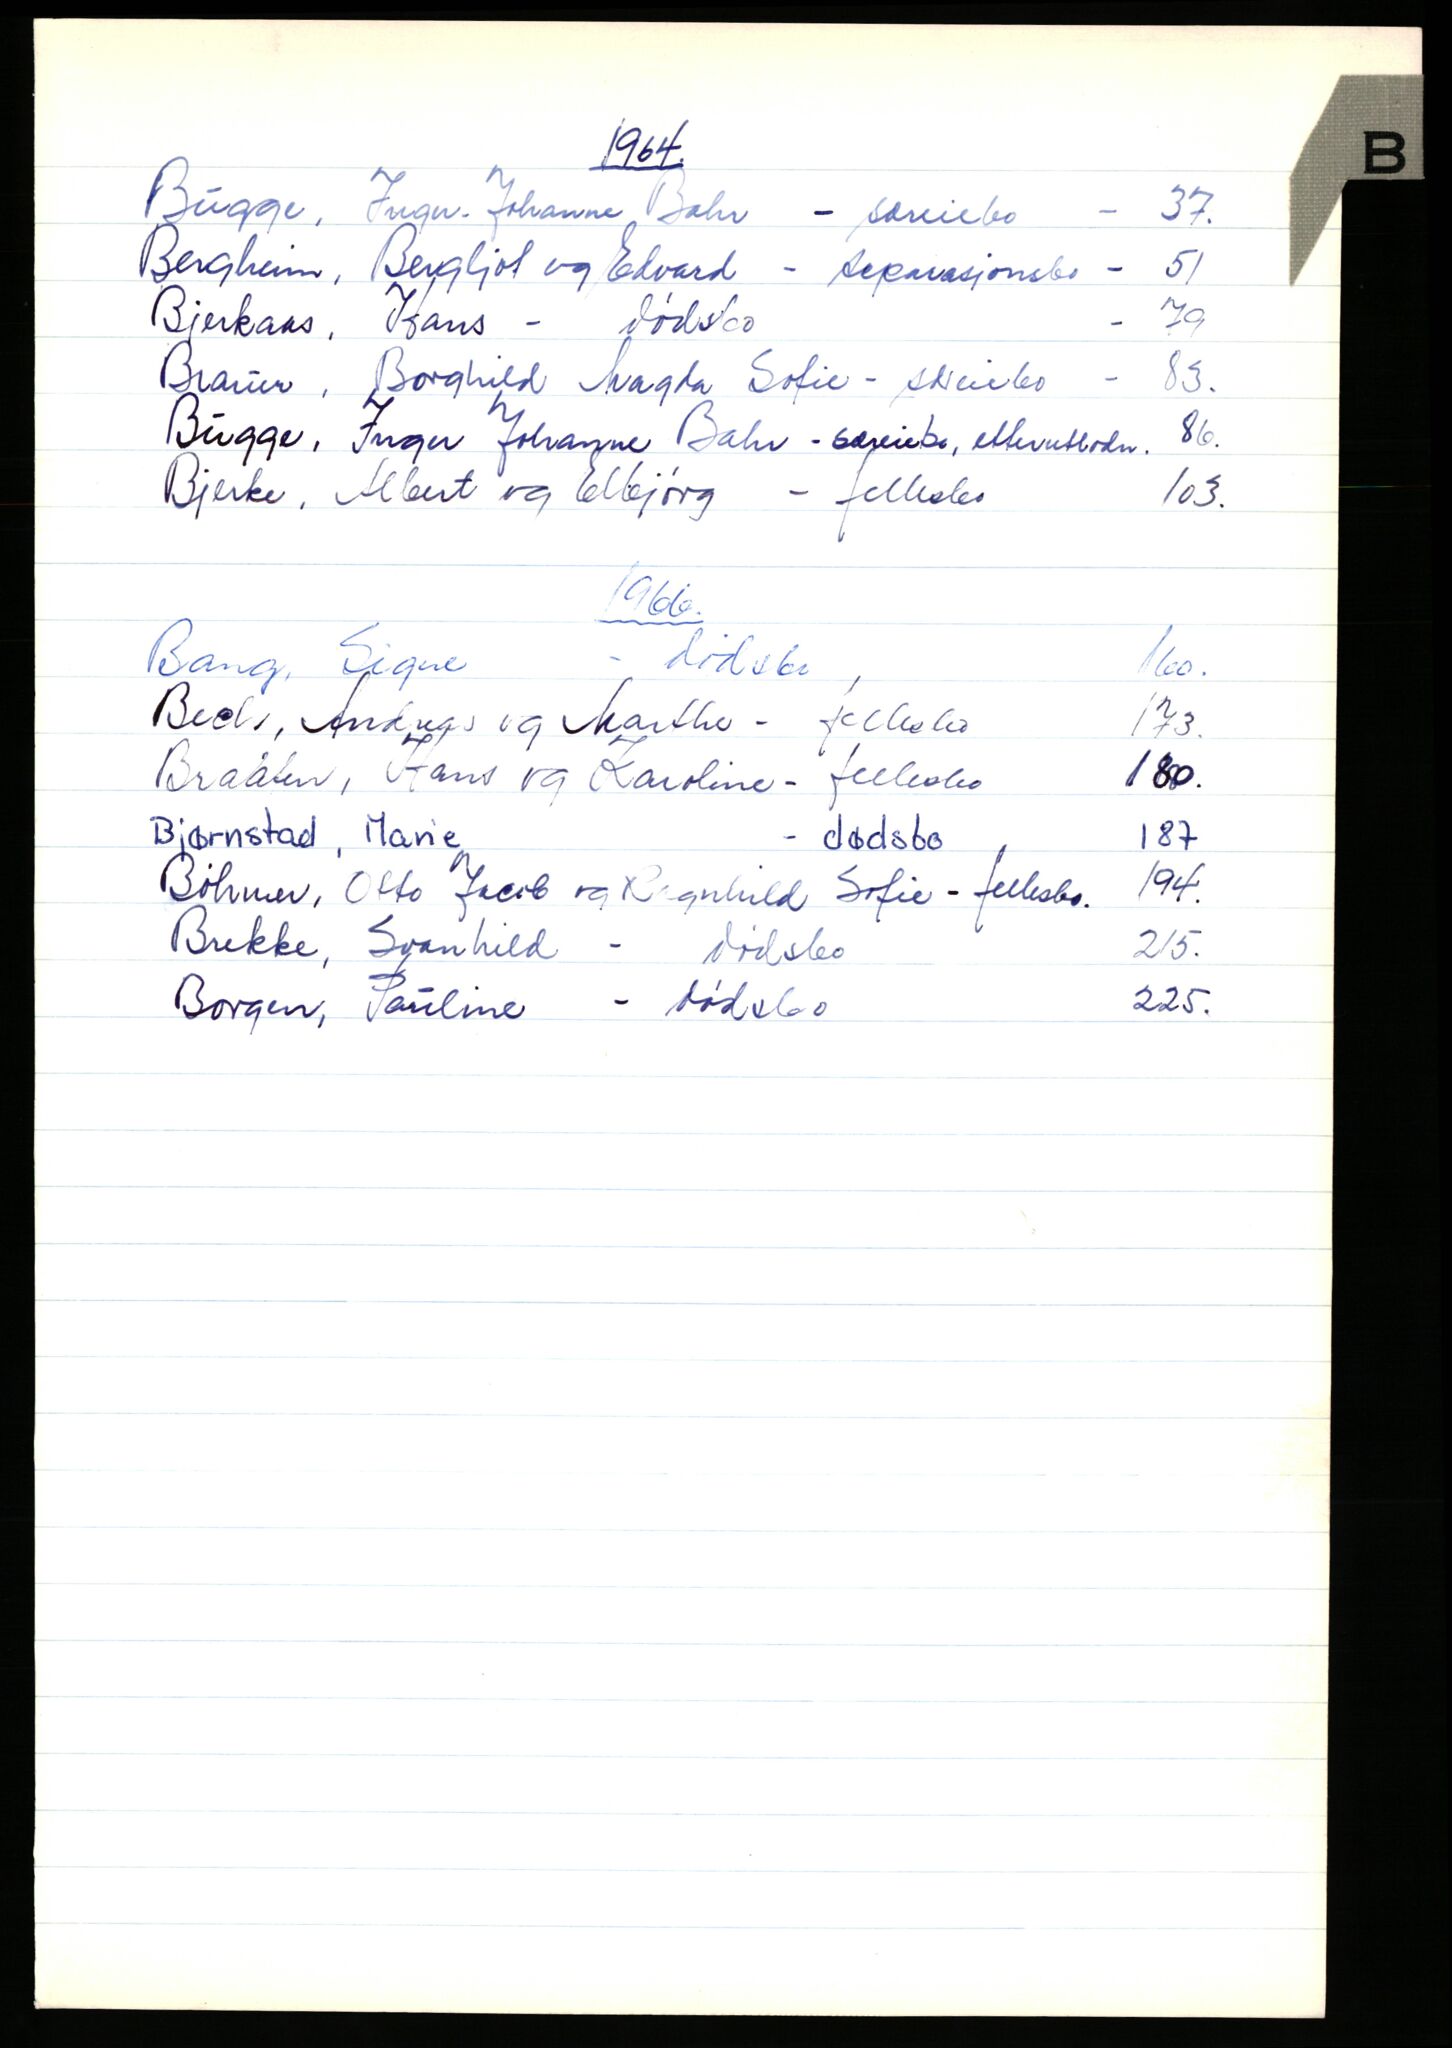 B
1964.
Bugge, Inger-Johanne Bahr - særeiebo - 37.
Bergheim, Bergljot og Edvard - separasjonsbo - 51
Bjerkaas, Hans - dødsbo - 79
Brauer, Borghild Magda Sofie - særeiebo - 83.
Bugge, Inger Johanne Bahr - særeiebo, etterutlodn. 86.
Bjerke, Albert og Ellbjørg - fellesbo 103.
1966.
Bang, Signe - dødsbo, 160.
Beck, Andreas og Marthe - fellesbo 173.
Braåten, Hans og Karoline - fellesbo 180.
Bjørnstad, Marie - dødsbo, 187
Böhmer, Otto Jacob og Ragnhild Sofie - fellesbo. 194.
Brekke, Svanhild - dødsbo 215.
Borgen, Pauline - dødsbo 225.